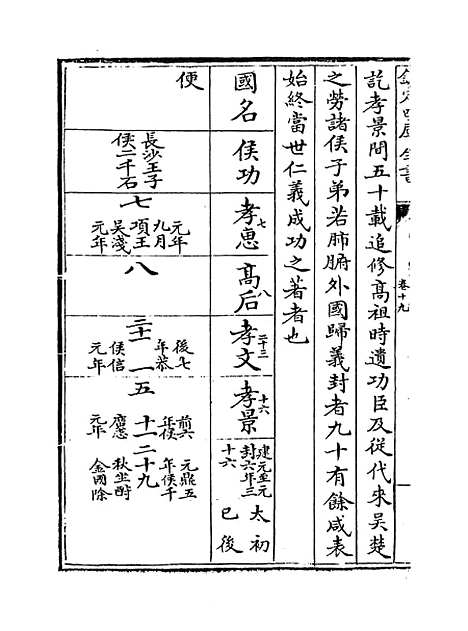 欽定四庫全書
卷十九
訖孝景間五十載追修高祖時遺功臣及從代來吳楚
之勞諸侯子弟若肺腑外國歸義封者九十有餘咸表
始終當世仁義成功之著者也
國名
侯功
孝惠七
高后八
孝文二十三
孝景十六
建元至元
封六年三
十六
太初
已後
便
長沙王子
侯二千石
七
元年
九月
項王
吳淺
元年
八
二十二
一
後七
年恭
侯信
元年
五
十一
前六
年侯
廣志
元年
二十九
元鼎五
年侯千
秋坐酎
金國除